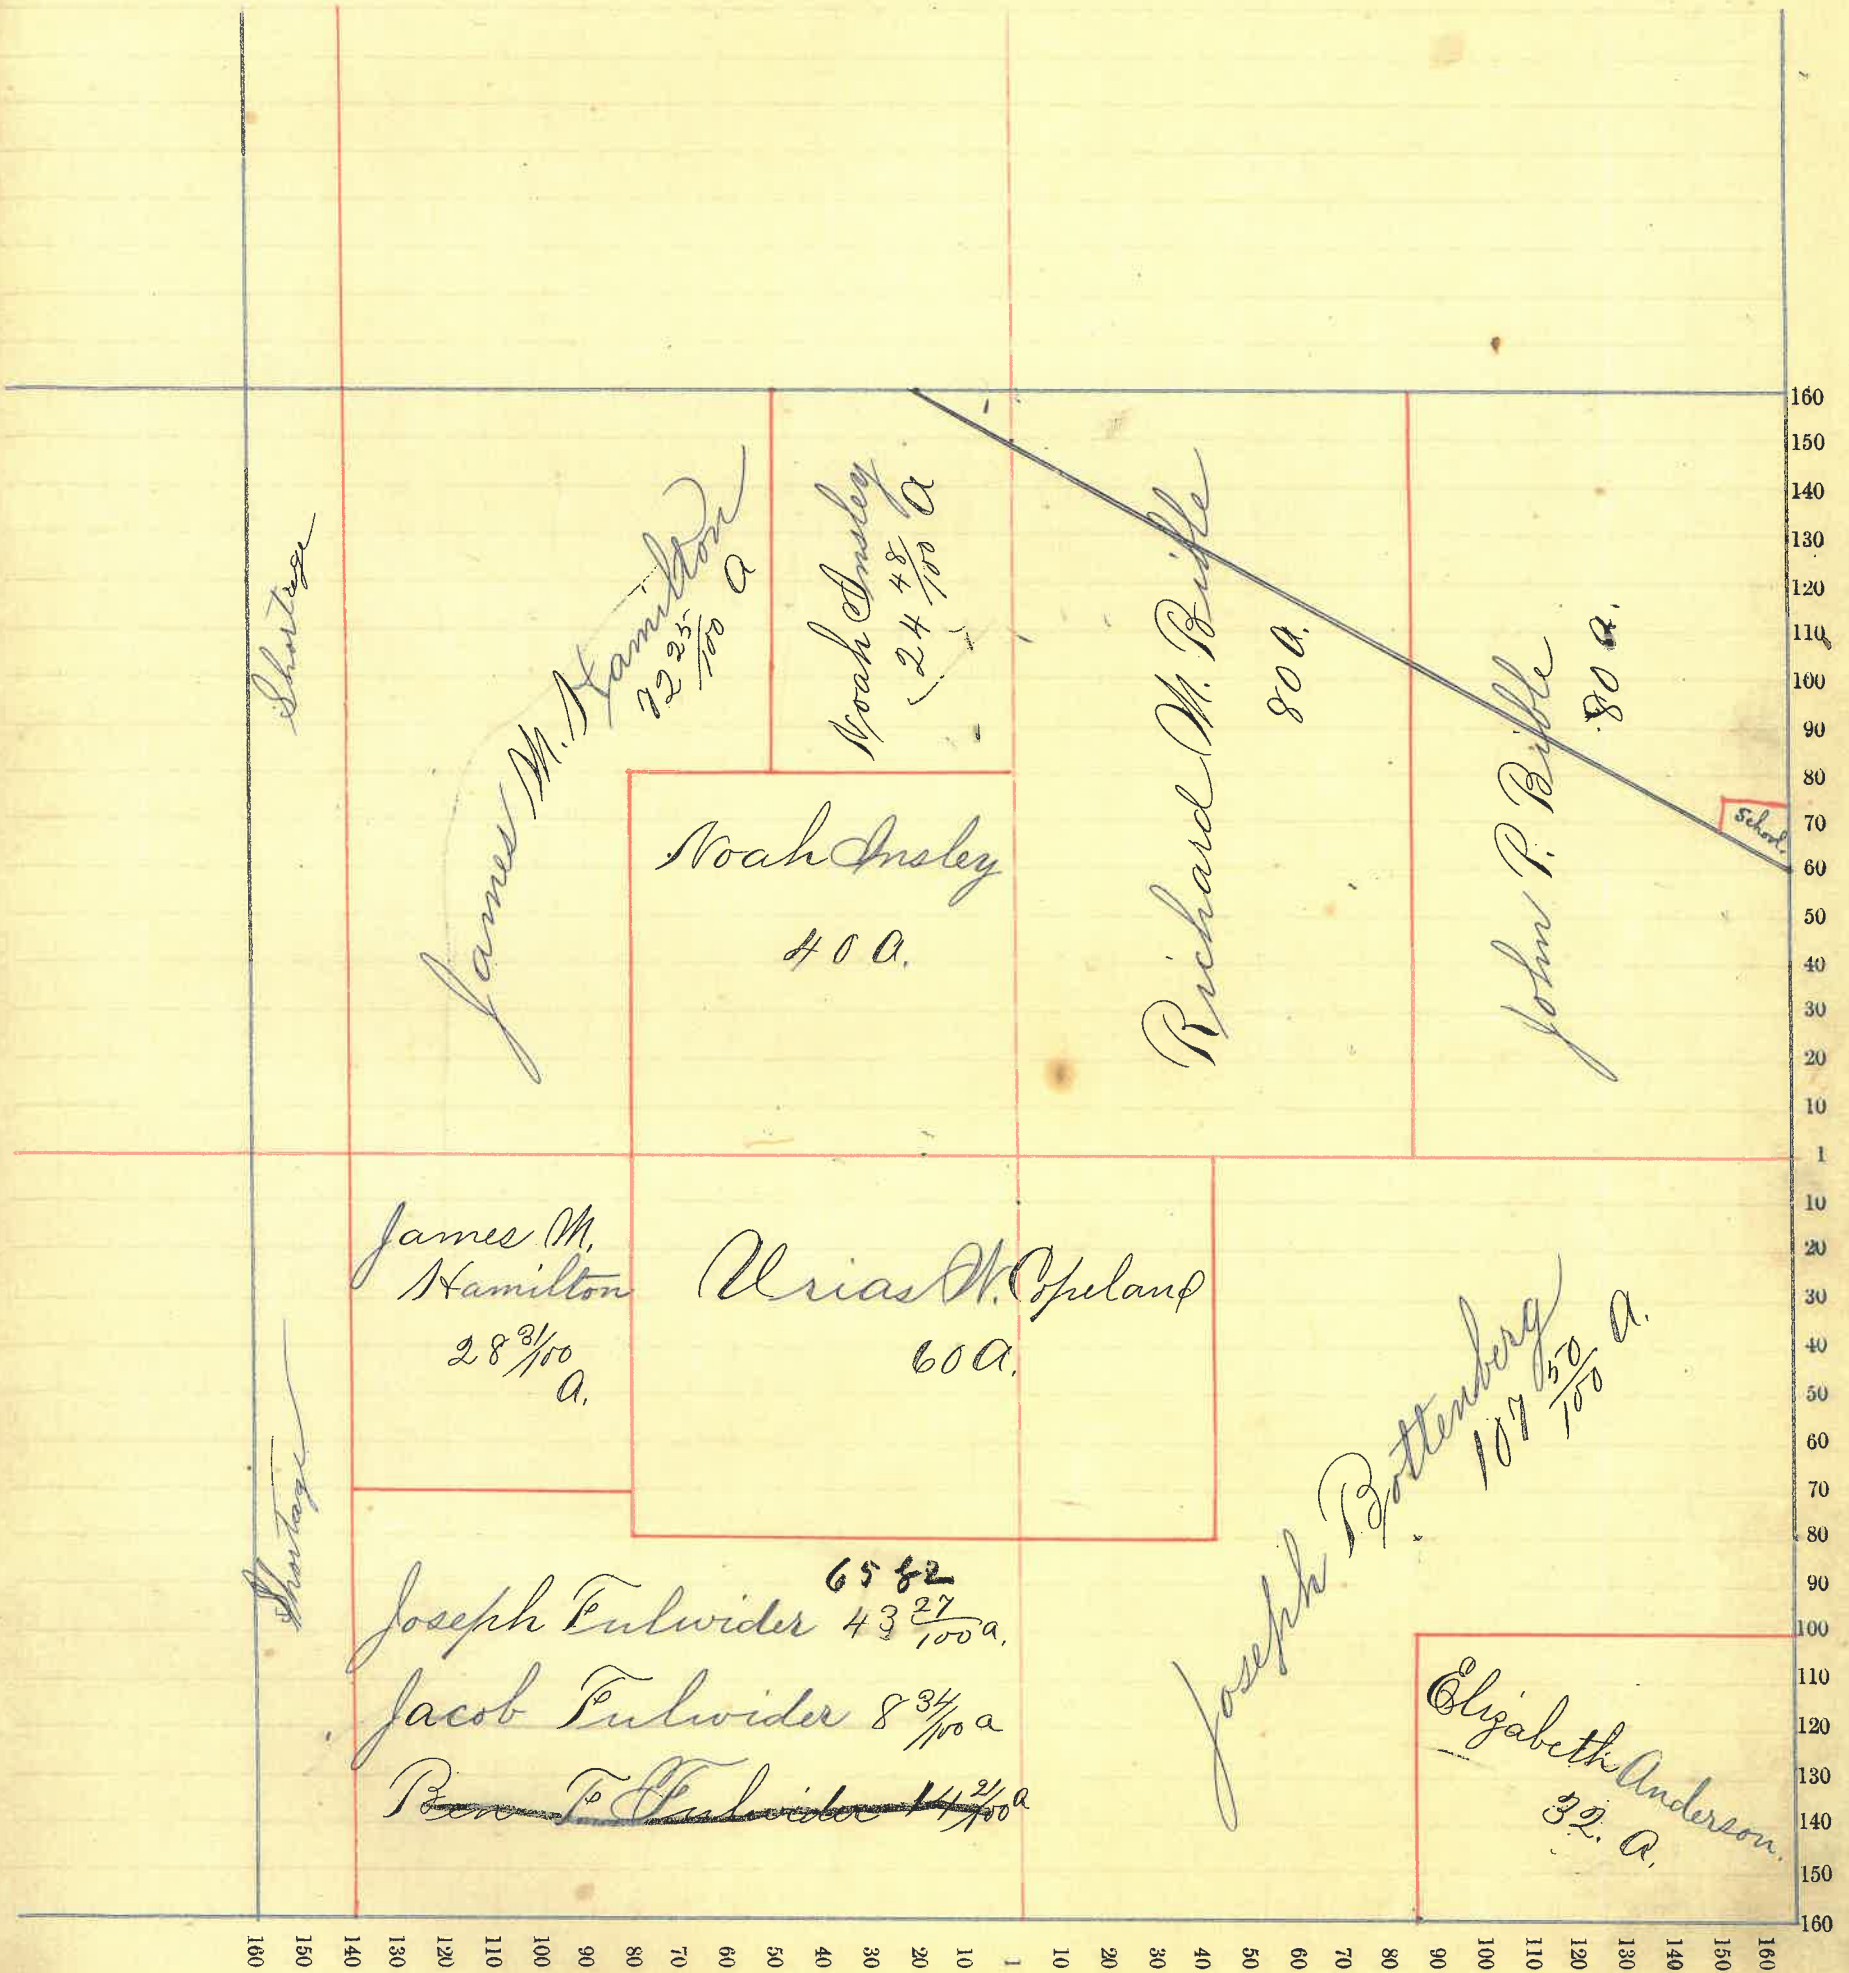 Shortage
James M. Hamilton
72 25/100 a
Noah Insley
24 48/100 a
Richard M. Bible
80 a.
John P. Bible
80 a.
School.
Noah Insley
40 a.
James M.
Hamilton
28 31/100
a.
Urias W. Copeland
60 a.
Joseph Bottenberg
107 50/100 a.
Shortage
65 62
Joseph Fulwider 43 27/100 a.
Jacob Fulwider 8 34/100 a
Ben F. Fulwider 14 21/100 a
Elizabeth Anderson.
32. a.
160
150
140
130
120
110
100
90
80
70
60
50
40
30
20
10
1
10
20
30
40
50
60
70
80
90
100
110
120
130
140
150
160
160 150 140 130 120 110 100 90 80 70 60 50 40 30 20 10 1 10 20 30 40 50 60 70 80 90 100 110 120 130 140 150 160